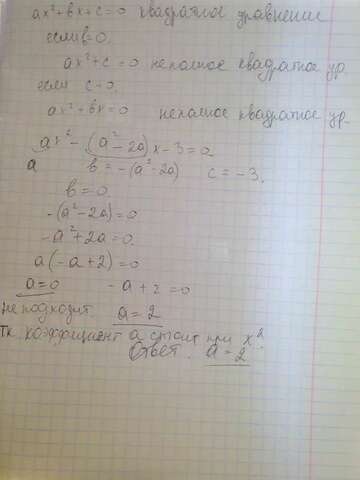 ax²+bx+c=0 квадратное уравнение
если b=0.
ax²+c=0 неполное квадратное ур.
если c=0.
ax²+bx=0 неполное квадратное ур.
ax²-(a²-2a)x-3=0
a b=-(a²-2a) c=-3.
b=0.
-(a²-2a)=0
-a²+2a=0.
a(-a+2)=0
a=0 -a+2=0
не подходит. a=2
тк коэффициент a стоит при x².
Ответ. a=2